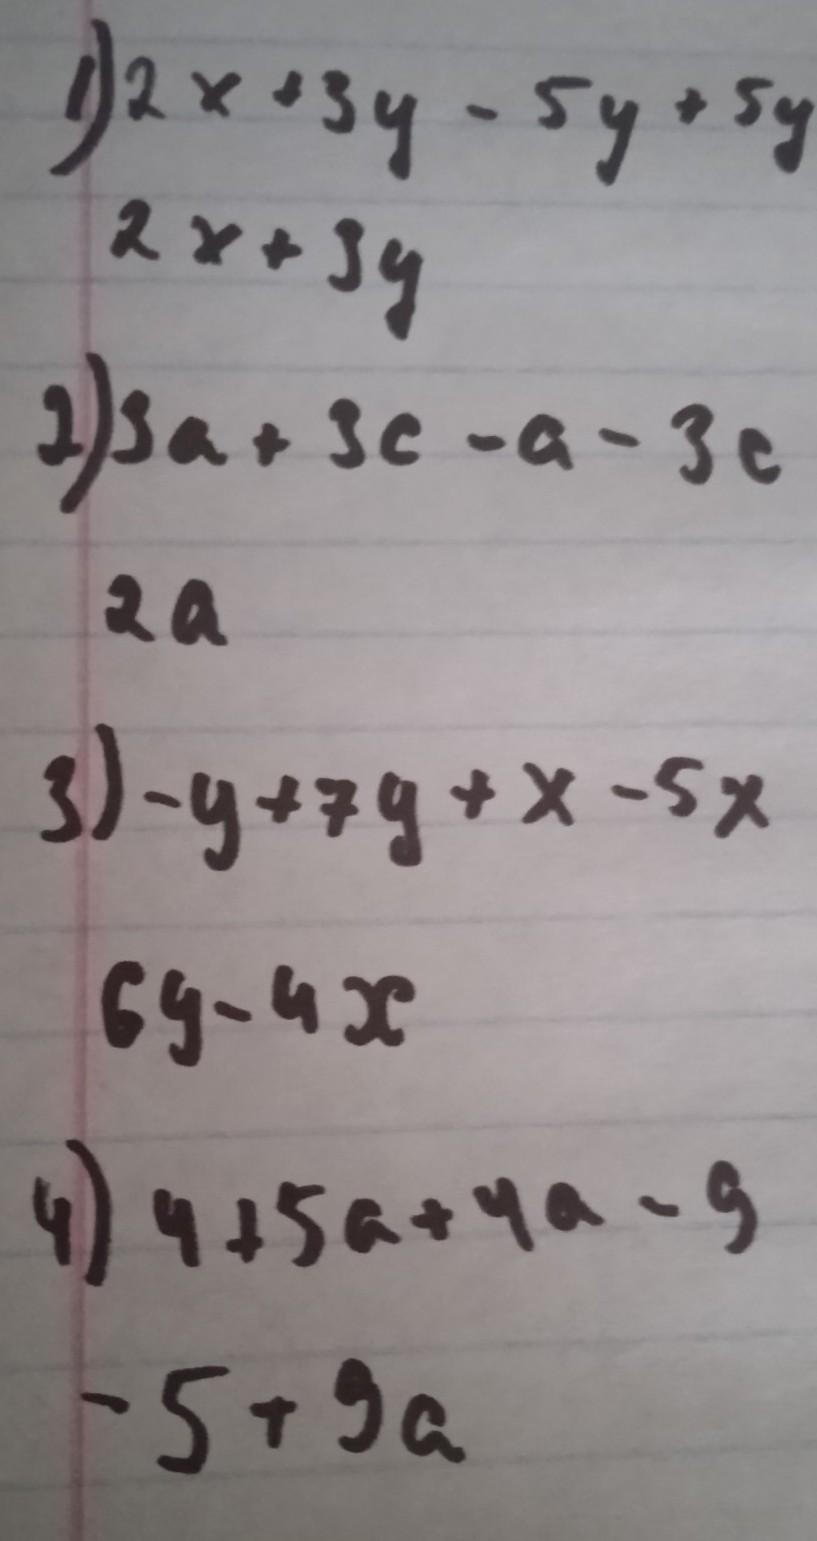 1) 2x + 3y - 5y + 5y
2x + 3y
2) 3a + 3c - a - 3c
2a
3) -y + 7y + x - 5x
6y - 4x
4) 4 + 5a + 4a - 9
- 5 + 9a